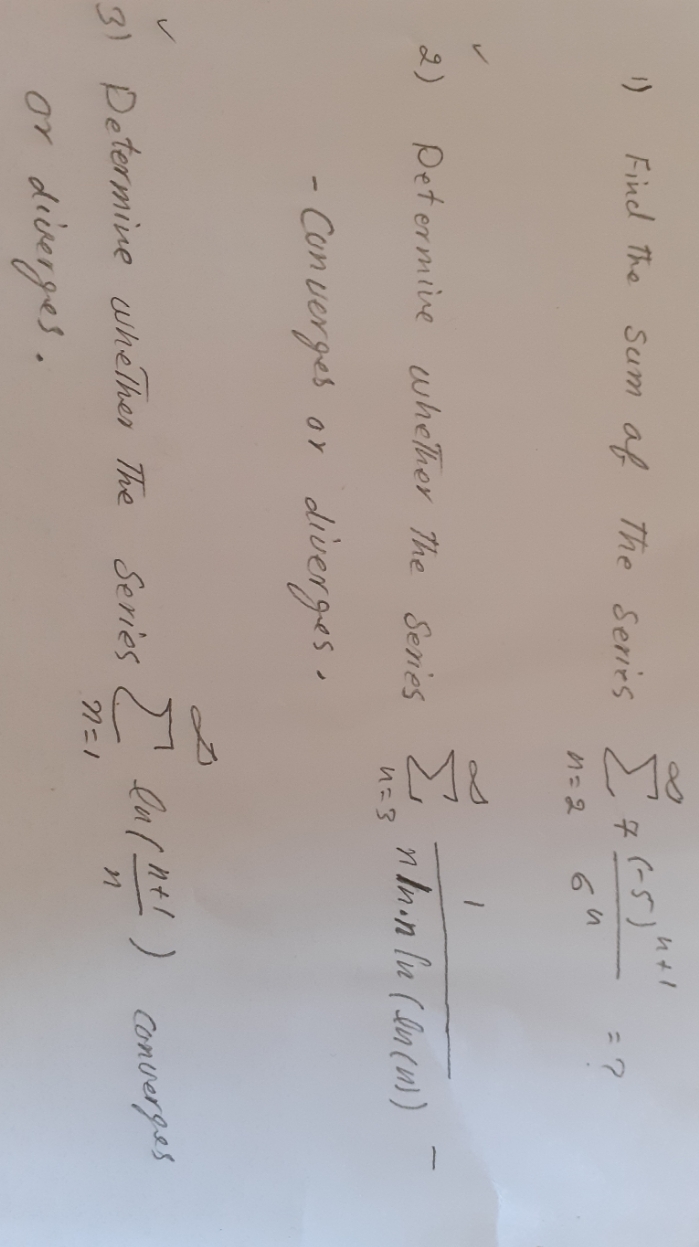 1) Find the sum of the series ∑_{n=2}^{∞} 7(-5)^{n+1}/6^n = ?
✓ 2) Determine whether the series ∑_{n=3}^{∞} 1/(n ln·n ln(ln(n))) -
- Converges or diverges.
✓ 3) Determine whether the series ∑_{n=1}^{∞} ln((n+1)/n) converges
or diverges.